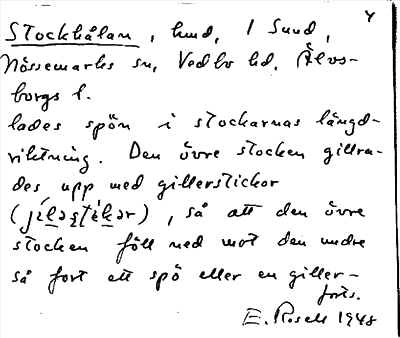 4
Stockhålan, hmd, 1 Sund,
Nössemarks sn, Vedbo hd. Älvs-
borgs l.
lades spön i stockarnas längd-
riktning. Den övre stocken gillra-
des upp med gillerstickor
(jíləstékər), så att den övre
stocken föll ned mot den undre
så fort ett spö eller en giller-
forts.
E. Rosell 1948